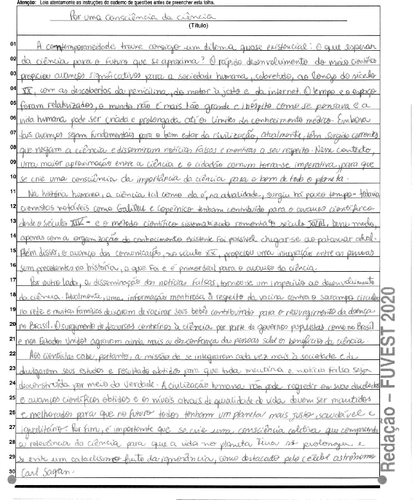 Atenção: Leia atentamente as instruções do caderno de questões antes de preencher esta folha.
Por uma consciência da ciência
(Título)
01 A contemporaneidade trouxe consigo um dilema quase existencial: O que esperar
02 da ciência para o futuro que se aproxima? O rápido desenvolvimento do meio científico
03 propiciou avanços significativos para a sociedade humana, sobretudo, ao longo do século
04 XX, com as descobertas da penicilina, do motor a jato e da internet. O tempo e o espaço
05 foram relativizados, o mundo não é mais tão grande e inóspito como se pensava e a
06 vida humana pode ser criada e prolongada até os limites do conhecimento médico. Embora
07 tais avanços sejam fundamentais para o bem estar da civilização, atualmente, têm surgido correntes
08 que negam a ciência e disseminam notícias falsas e mentiras a seu respeito. Nesse contexto,
09 uma maior aproximação entre a ciência e o cidadão comum torna-se imperativa, para que
10 se crie uma consciência da importância da ciência para o bem de todo o planeta.
11 Na história humana, a ciência tal como ela é, na atualidade, surgiu há pouco tempo - todavia
12 cientistas notáveis como Galileu e Copérnico tenham contribuído para o avanço científico
13 desde o século XIV - e o método científico sistematizado somente no século XVII, deste modo,
14 apenas com a organização do conhecimento existente foi possível chegar-se ao patamar atual.
15 Além disso, o avanço da comunicação, no século XX, propiciou uma integração entre as pessoas
16 sem precedentes na história, a que foi e é primordial para o avanço da ciência.
17 Por outro lado, a disseminação das notícias falsas, tornou-se um empecilho ao desenvolvimento
18 da ciência. Atualmente, uma informação mentirosa à respeito da vacina contra o sarampo circulou
19 na rede e muitas famílias deixaram de vacinar seus bebês contribuindo para o ressurgimento da doença
20 no Brasil. O surgimento de discursos contrários à ciência por parte de governos populistas como no Brasil
21 e nos Estados Unidos agravam ainda mais a desconfiança das pessoas sobre os benefícios da ciência.
22 Aos cientistas cabe, portanto, a missão de se integrarem cada vez mais à sociedade e de
23 divulgarem seus estudos e resultados obtidos para que toda mentira e notícia falsa sejam
24 desconstruídas por meio da verdade. A civilização humana não pode regredir em suas descobertas
25 e avanços científicos obtidos e os níveis atuais de qualidade de vida devem ser mantidos
26 e melhorados para que no futuro todos tenham um planeta mais justo, saudável e
27 igualitário. Por fim, é importante que se crie uma consciência coletiva que compreenda
28 a relevância da ciência para que a vida no planeta Terra se prolongue e
29 se evite um cataclismo fruto da ignorância, como destacado pelo célebre astrônomo
30 Carl Sagan.
Redação – FUVEST 2020